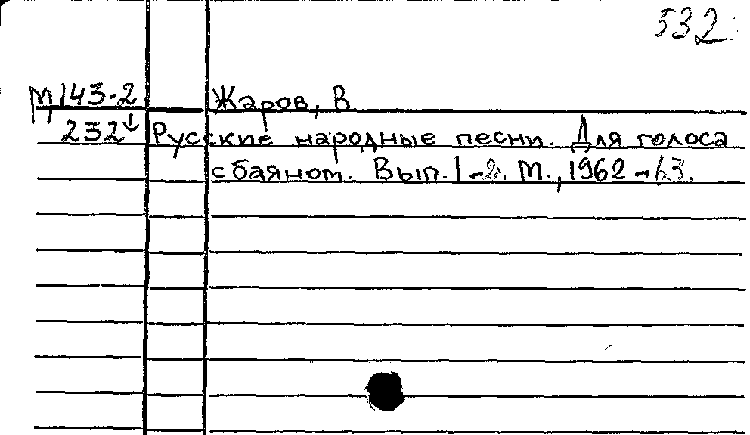 532
М143-2 Жаров, В.
232↓ Русские народные песни. Для голоса
с баяном. Вып. 1-2. М., 1962-63.